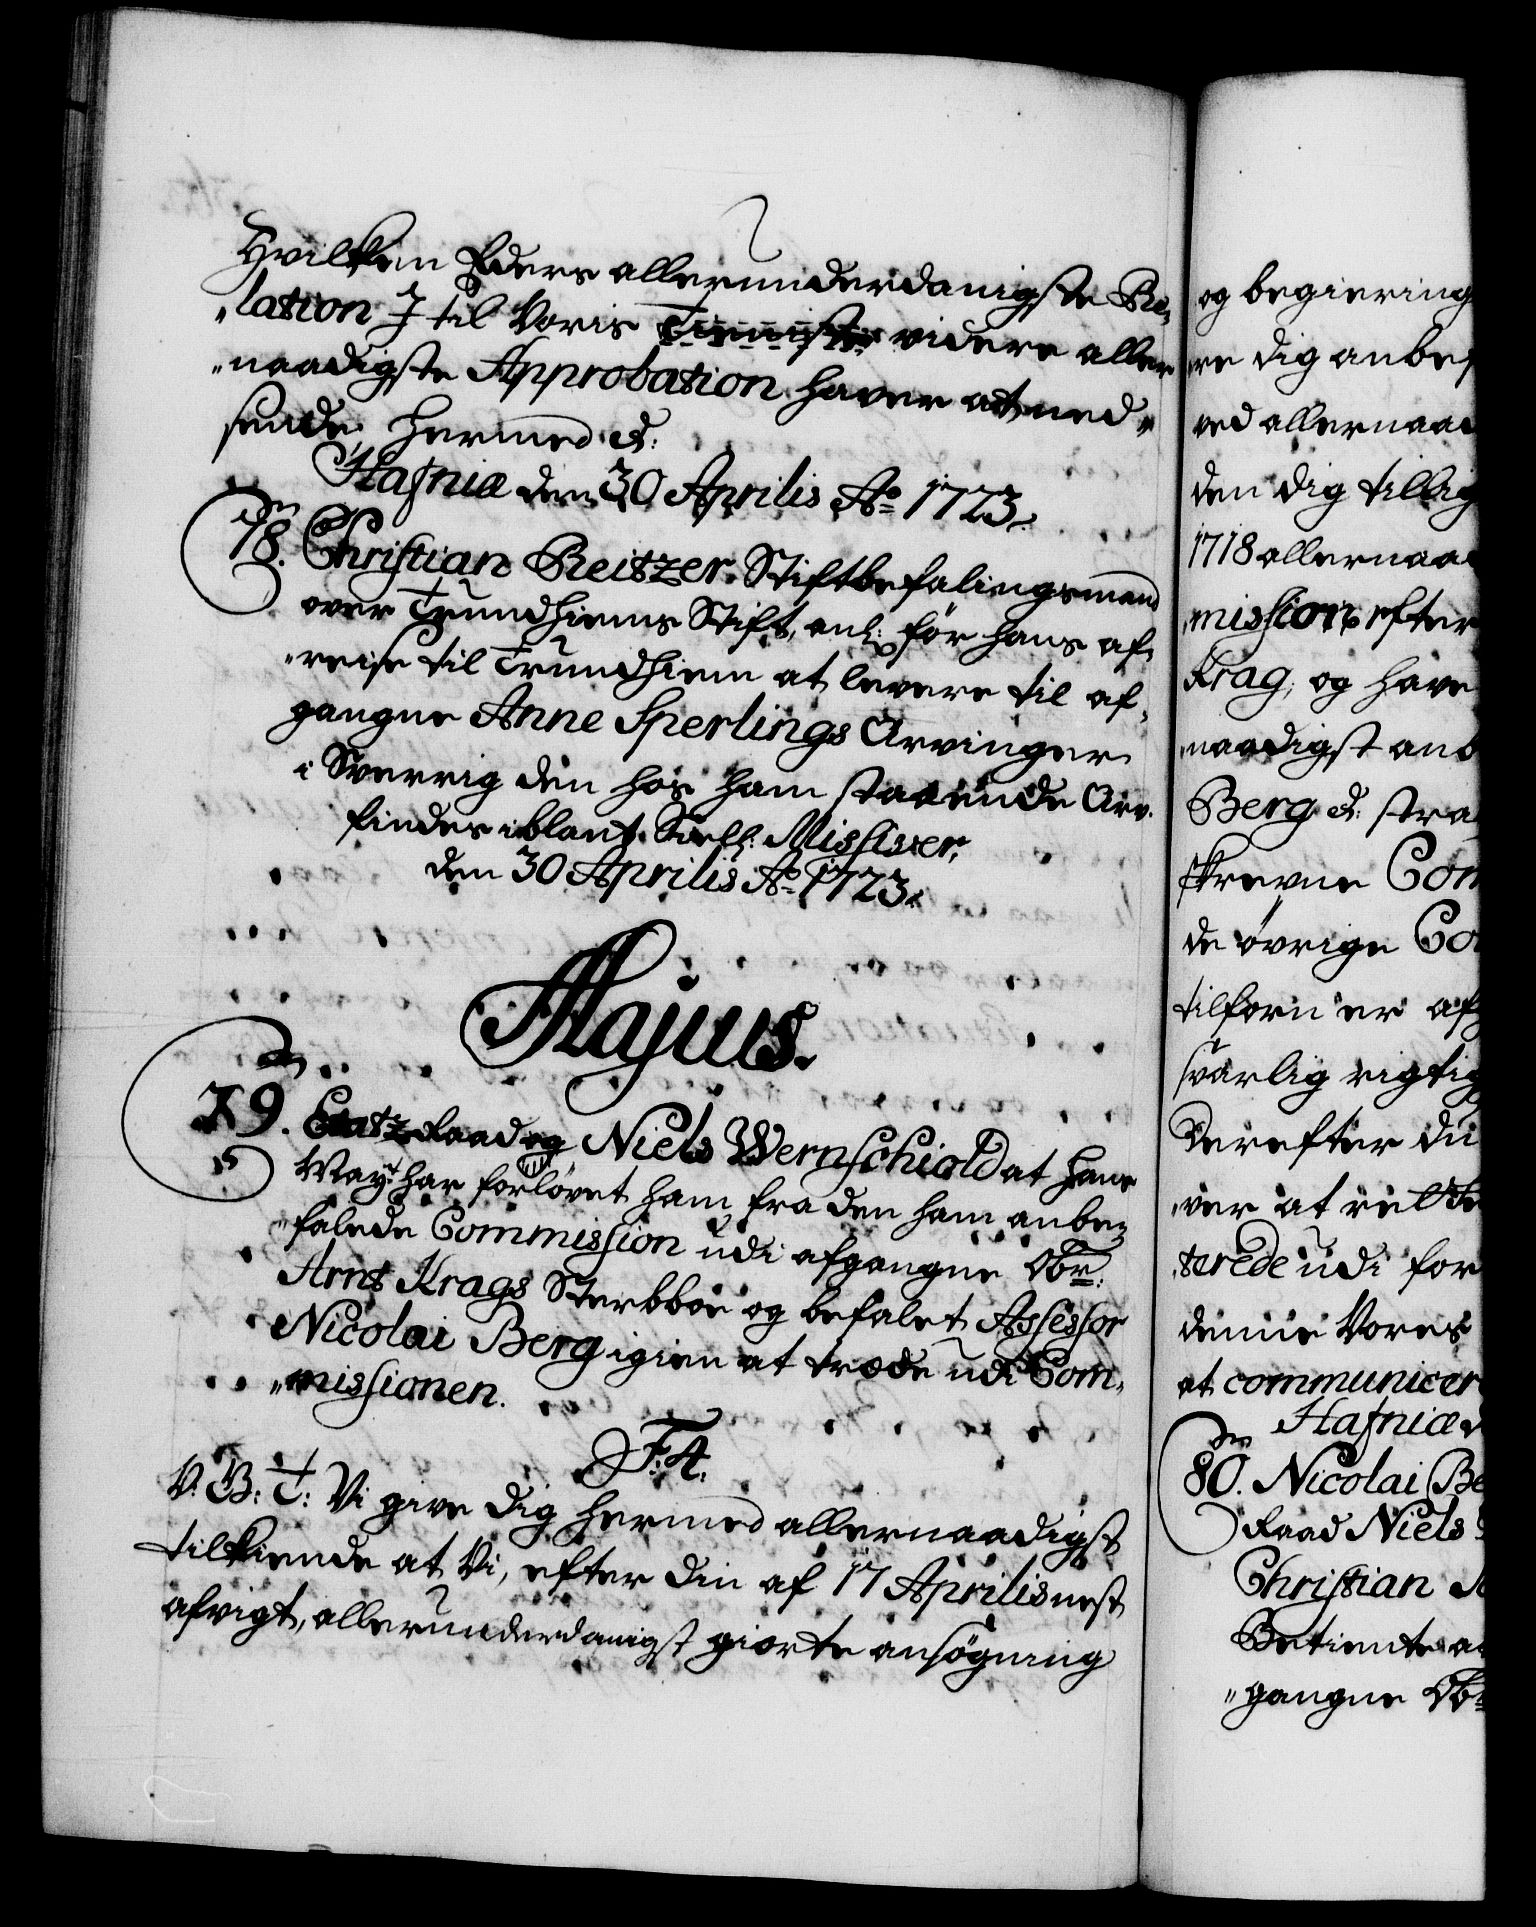 Hvilken Eders allerunderdanigste Re„
„lation I til Voris videre aller
„naadigste Approbation haver at ned„
sende, hermed &:
Hafniæ den 30 Aprilis Ao 1723.
78. Christian Reitzer Stiftbefalingsmand
over Trundhiems Stift, anl: før hans af„
„reise til Trundhiem at levere til af„
gangne Anne Sperlings Arvinger
i Sverrig den hos ham staaende Arv.
findes iblant Siell: Missiver,
den 30 Aprilis Ao 1723.
Majus.
79. Etatz Raad og Niels Wernschiold at hans
Mayt har forløvet ham fra den ham anbe„
„falede Commission udi afgangne Obr:
Arnt Krags Sterbboe og befalet Assessor
Nicolai Berg igien at træde udi Com„
„missionen.
F: 4.
V: G: T: Vi give dig hermed allernaadigst
tilkiende at Vi, efter din af 17 Aprilis nest
afvigt, allerunderdanigst giorte ansøgning
og begiering
re dig anbef
ved allernaad
den dig tillig
1718 allernaa
„mission efter
Krag, og have
„naadigst anb
Berg &: stra
skrevne Com
de øvrige Co
tilforn er af
svarlig rigtig
Derefter du
„ver at rette
„terede udi for
denne Vores
at communicer
Hafniæ d
80. Nicolai Be
Raad Niels
Christian
Betiente a
„gangne Obr